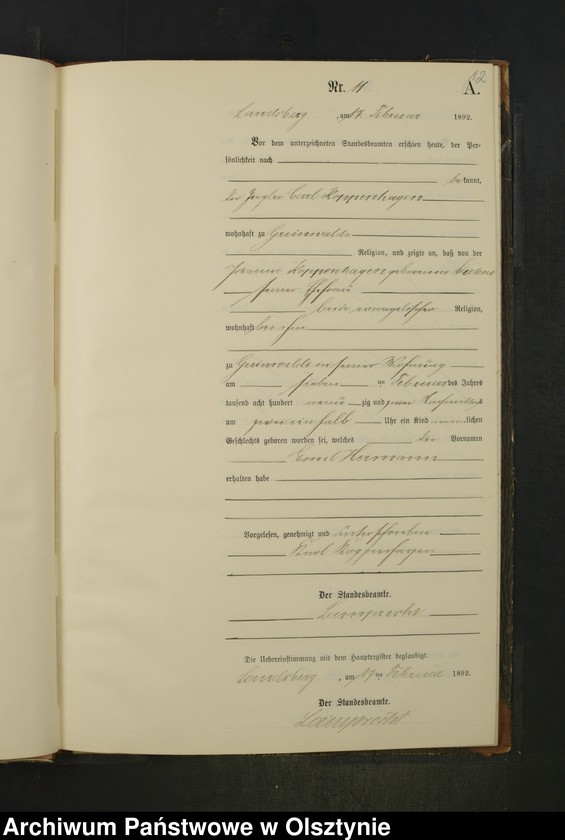 12
Nr. 11 A.
Landsberg, am 17. Februar 1892.
Vor dem unterzeichneten Standesbeamten erschien heute, der Per-
sönlichkeit nach
bekannt,
der Carl Koppenhagen
wohnhaft zu Grünwalde
Religion, und zeigte an, daß von der
Koppenhagen geborenen
seiner Ehefrau
beide evangelischer Religion,
wohnhaft bei ihm
zu Grünwalde in seiner Wohnung
am sieben ten Februar des Jahres
tausend acht hundert neun zig und zwei Nachmittags
um halb Uhr ein Kind männlichen
Geschlechts geboren worden sei, welches die Vornamen
Ernst Hermann
erhalten habe
Vorgelesen, genehmigt und unterschrieben
Karl Koppenhagen
Der Standesbeamte.
Lamprecht
Die Uebereinstimmung mit dem Hauptregister beglaubigt.
Landsberg, am 17 ten Februar 1892.
Der Standesbeamte.
Lamprecht
Archiwum Państwowe w Olsztynie